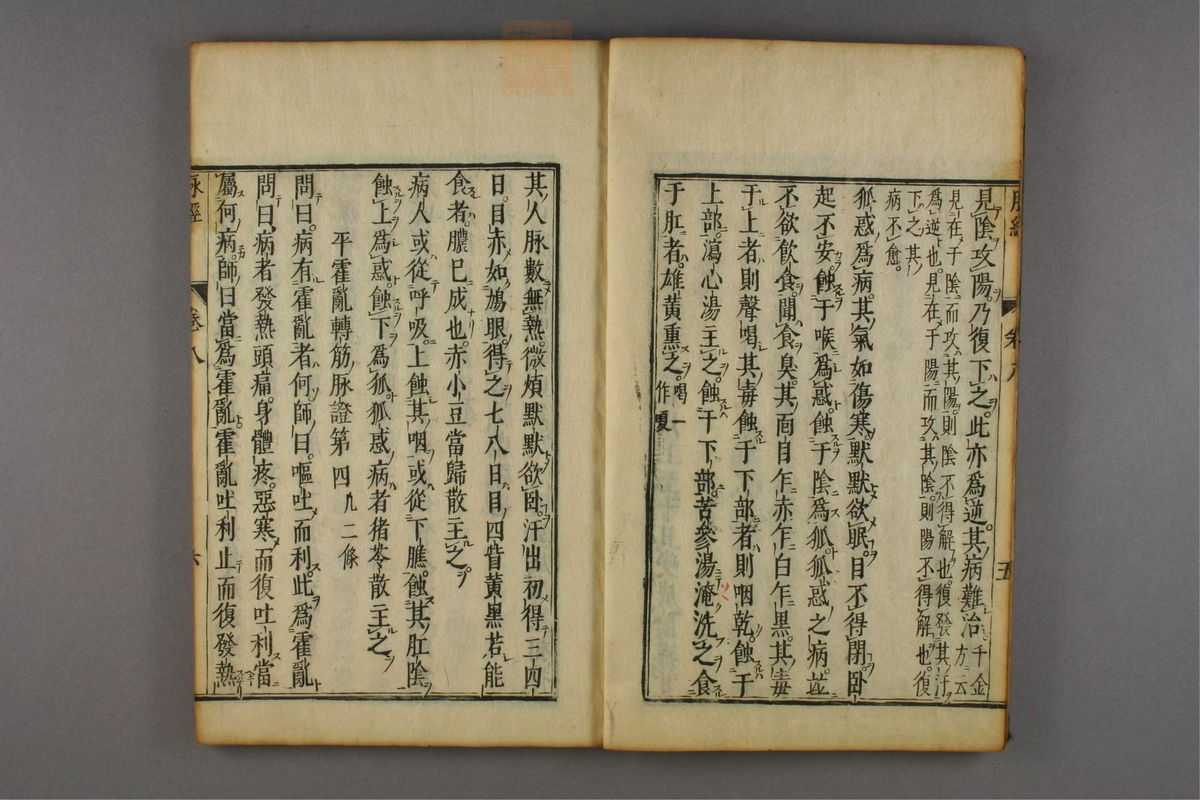 見陰攻陽乃復下之此亦爲逆其病難治千金方云
見在于陰而攻其陽則陰不得解也復發其汗
爲逆也見在于陽而攻其陰則陽不得解也復
下之其病不愈
狐惑爲病其氣如傷寒默默欲眠目不得閉卧
起不安蝕于喉爲惑蝕于陰爲狐狐惑之病並
不欲飲食聞食臭其面目乍赤乍白乍黑其毒
于上者則聲喝其毒蝕于下部者則咽乾蝕于
上部瀉心湯主之蝕于下部苦參湯淹洗之食
于肛者雄黃熏之喝一作嗄
五
其人脉數無熱微煩默默欲卧汗出初得三四
日目赤如鳩眼得之七八日目四眥黃黑若能
食者膿巳成也赤小豆當歸散主之
病人或從呼吸上蝕其咽或從下膲蝕其肛陰
蝕上爲惑蝕下爲狐狐惑病者猪苓散主之
平霍亂轉筋脉證第四凡二條
問曰病有霍亂者何師曰嘔吐而利此爲霍亂
問曰病者發熱頭痛身體疼惡寒而復吐利當
屬何病師曰當爲霍亂霍亂吐利止而復發熱
脉經 卷八 六